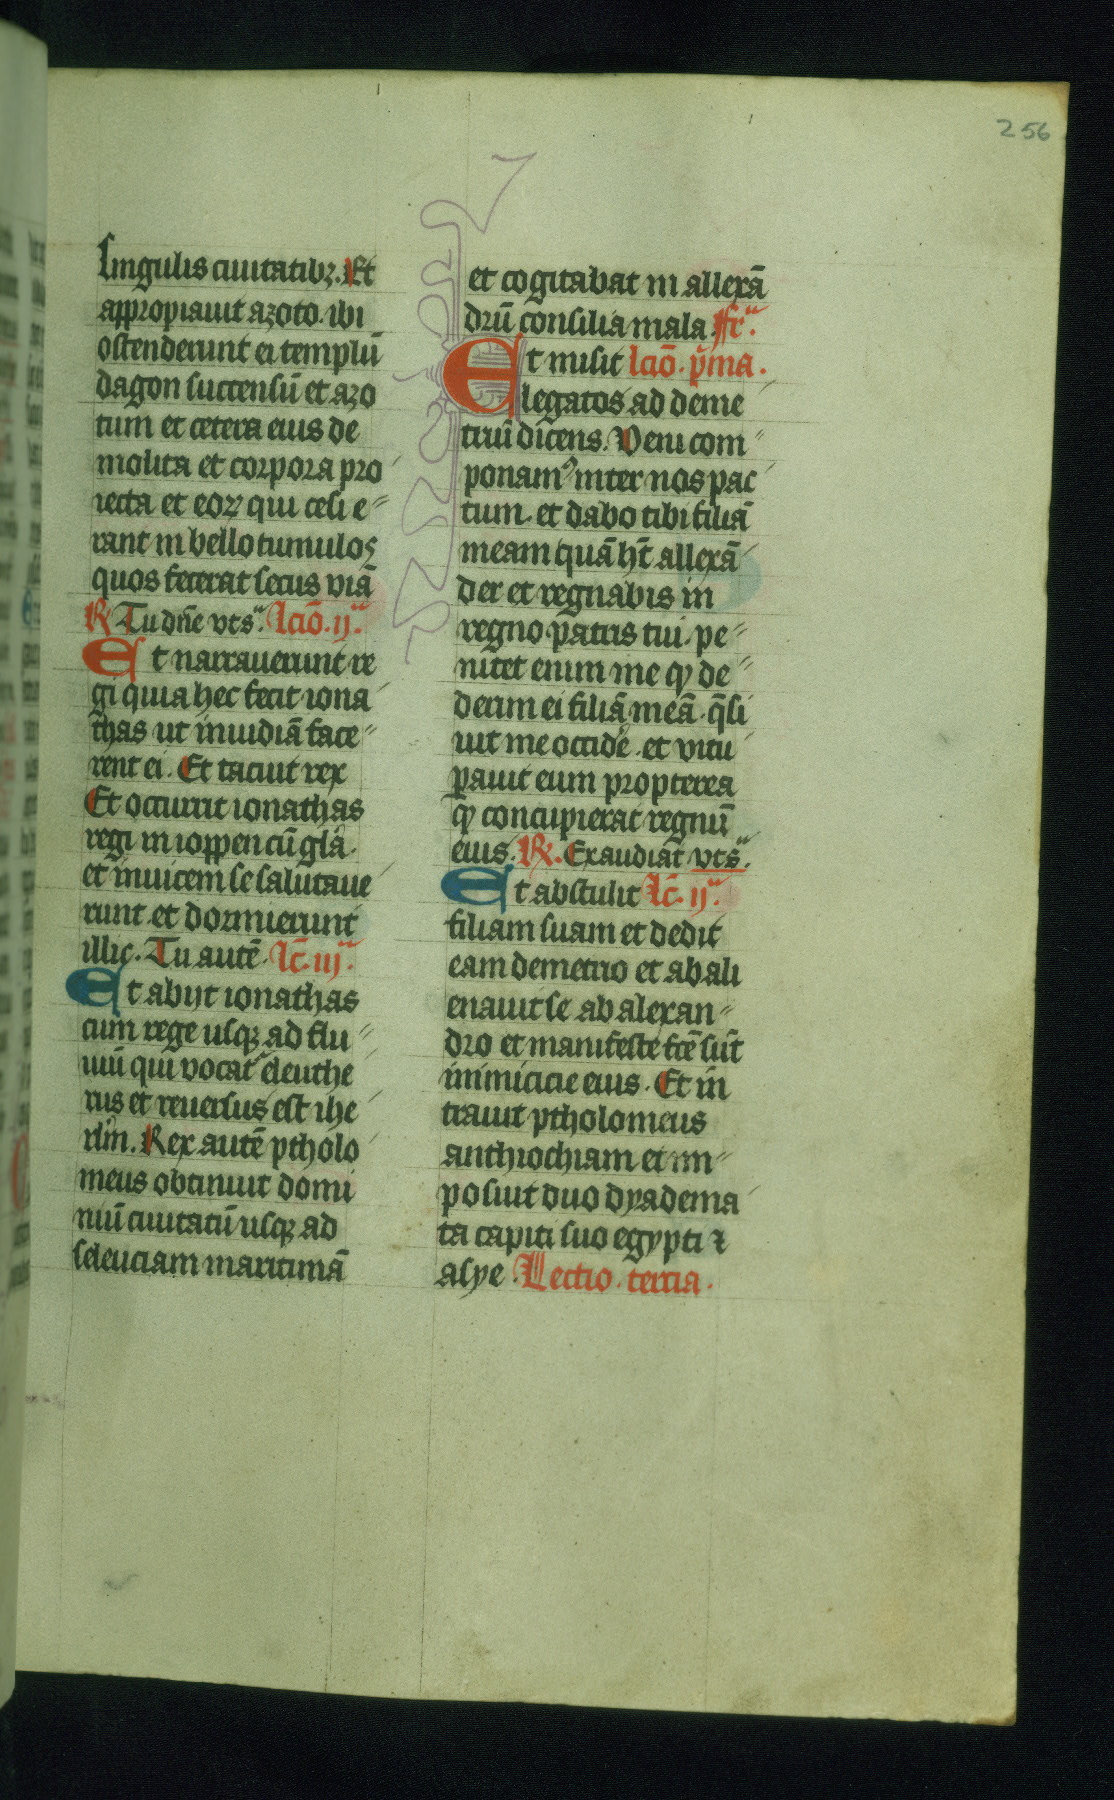 256
singulis ciuitatibꝫ. Et
appropiauit azoto. ibi
ostenderunt ei templū
dagon succensū et azo
tum et cetera eius de
molita et corpora pro
iecta et eoꝝ qui cesi e
rant in bello tumulos
quos fecerat secus viā
R Tu dn̄e vts. lcio. ij.
Et narrauerunt re
gi quia hec fecit iona
thas ut inuidiā face
rent ei. Et tacuit rex
Et occurrit ionathas
regi in ioppen cū glā.
et inuicem se salutaue
runt et dormierunt
illic. Tu autē. lc̄. iij.
Et abijt ionathas
cum rege usqꝫ ad flu
uiū qui vocat᷑ eleuthe
rus et reuersus est ihe
rlm̄. Rex autē ptholo
meus obtinuit domi
niū ciuitatū usqꝫ ad
seleuciam maritimā
et cogitabat in allexā
drū consilia mala. ffr̄.
Et misit lcio. pͥma.
legatos ad deme
triū dicens. Veni com
ponamꝰ inter nos pac
tum. et dabo tibi filiā
meam quā hꝫ̄ allexā
der et regnabis in
regno patris tui. pe
nitet enim me ꝙ de
derim ei filiā meā. q̄si
uit me occidē. et vitu
pauit eum propterea
ꝙ concupierat regnū
eius. R. Exaudiat vts.
Et abstulit lc̄. ij.
filiam suam et dedit
eam demetrio et abali
enauit se ab alexan
dro et manifeste fcē sūt
inimicicie eius. Et in
trauit ptholomeus
anthiochiam et im
posuit duo dyadema
ta capiti suo egypti ⁊
asye. Lectio. tercia.